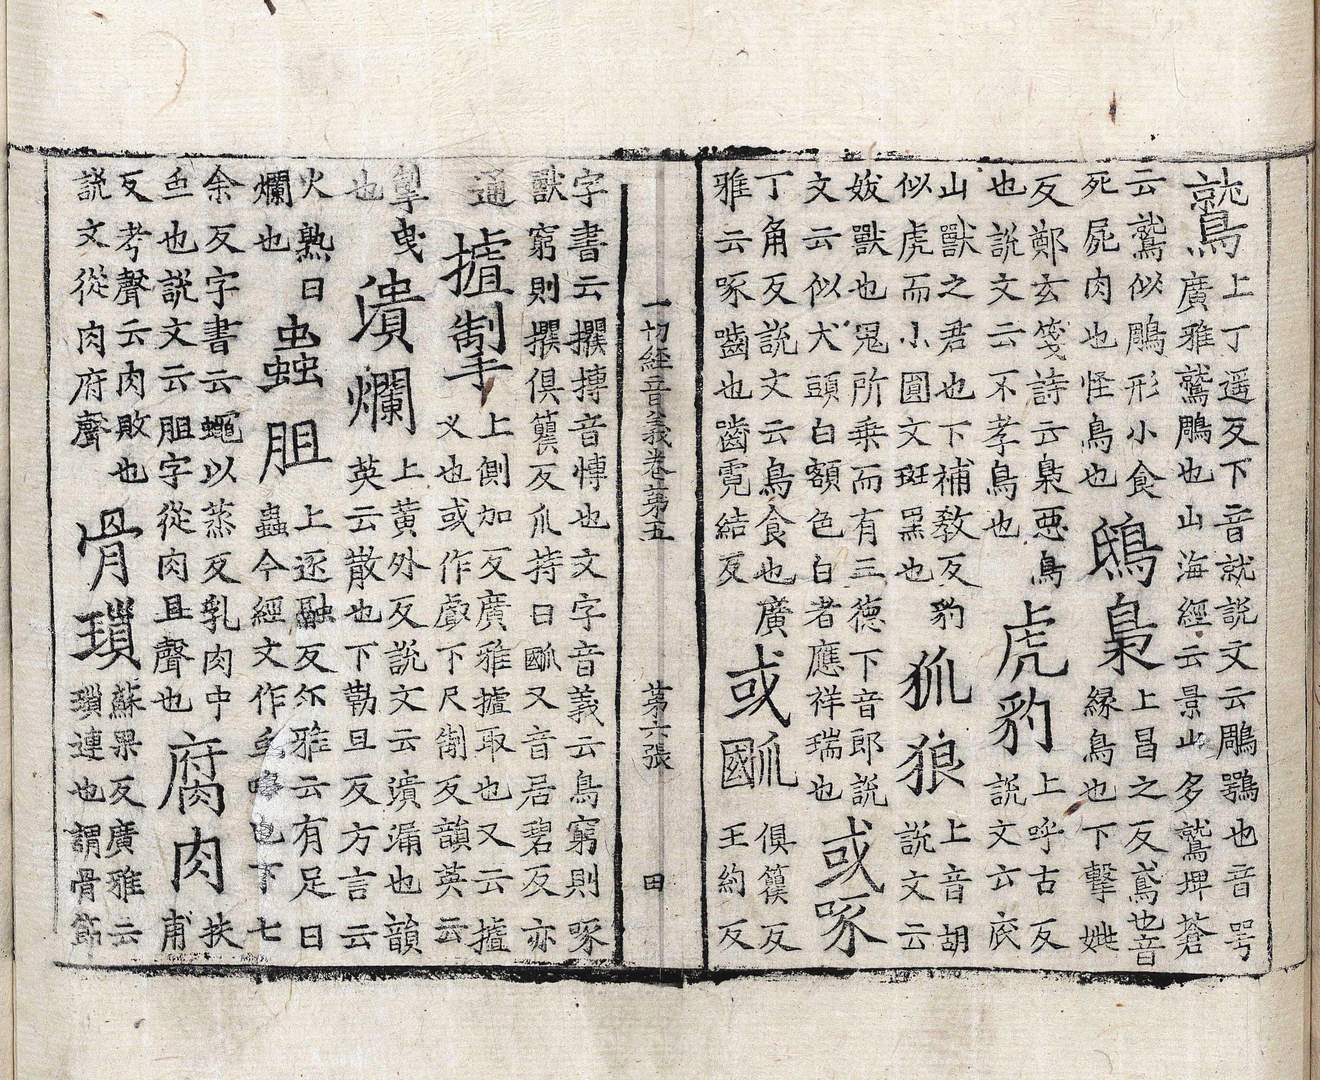 鷲
上丁遥反下音就説文云鵰鶚也音咢
廣雅鷲鵰也山海經云景山多鷲埤蒼
云鷲似鵰形小食
死屍肉也怪鳥也
鵄梟
上昌之反鳶也音
縁鳥也下擊姚
反鄭玄箋詩云梟惡鳥
也説文云不孝鳥也
虎豹
上呼古反
説文云
山獸之君也下補敎反豹
似虎而小圓文斑黑也
狐狼
上音胡
説文云
妖獸也鬼所乗而有三德下音郎説
文云似犬頭白額色白者應祥瑞也
或啄
丁角反説文云鳥食也廣
雅云啄嚙也嚙霓結反
或
俱籰反
王約反
一切經音義卷第五 第六張 田
字書云攫搏音慱也文字音義云鳥窮則啄
獸窮則攫俱籰反爪持曰又音居碧反亦
通
摣掣
上側加反廣雅摣取也又云摣
义也或作䖒下尺制反韻英云
掣曳
也
潰爛
上黄外反説文云潰漏也韻
英云散也下勒旦反方言云
火熟曰
爛也
蟲胆
上逐融反尒雅云有足曰
蟲今經文作虫略也下七
余反字書云蠅以蒸反乳肉中
虫也説文云胆字從肉且聲也
腐肉
扶
甫
反考聲云肉敗也
説文從肉府聲
骨瑣
蘇果反廣雅云
瑣連也謂骨節